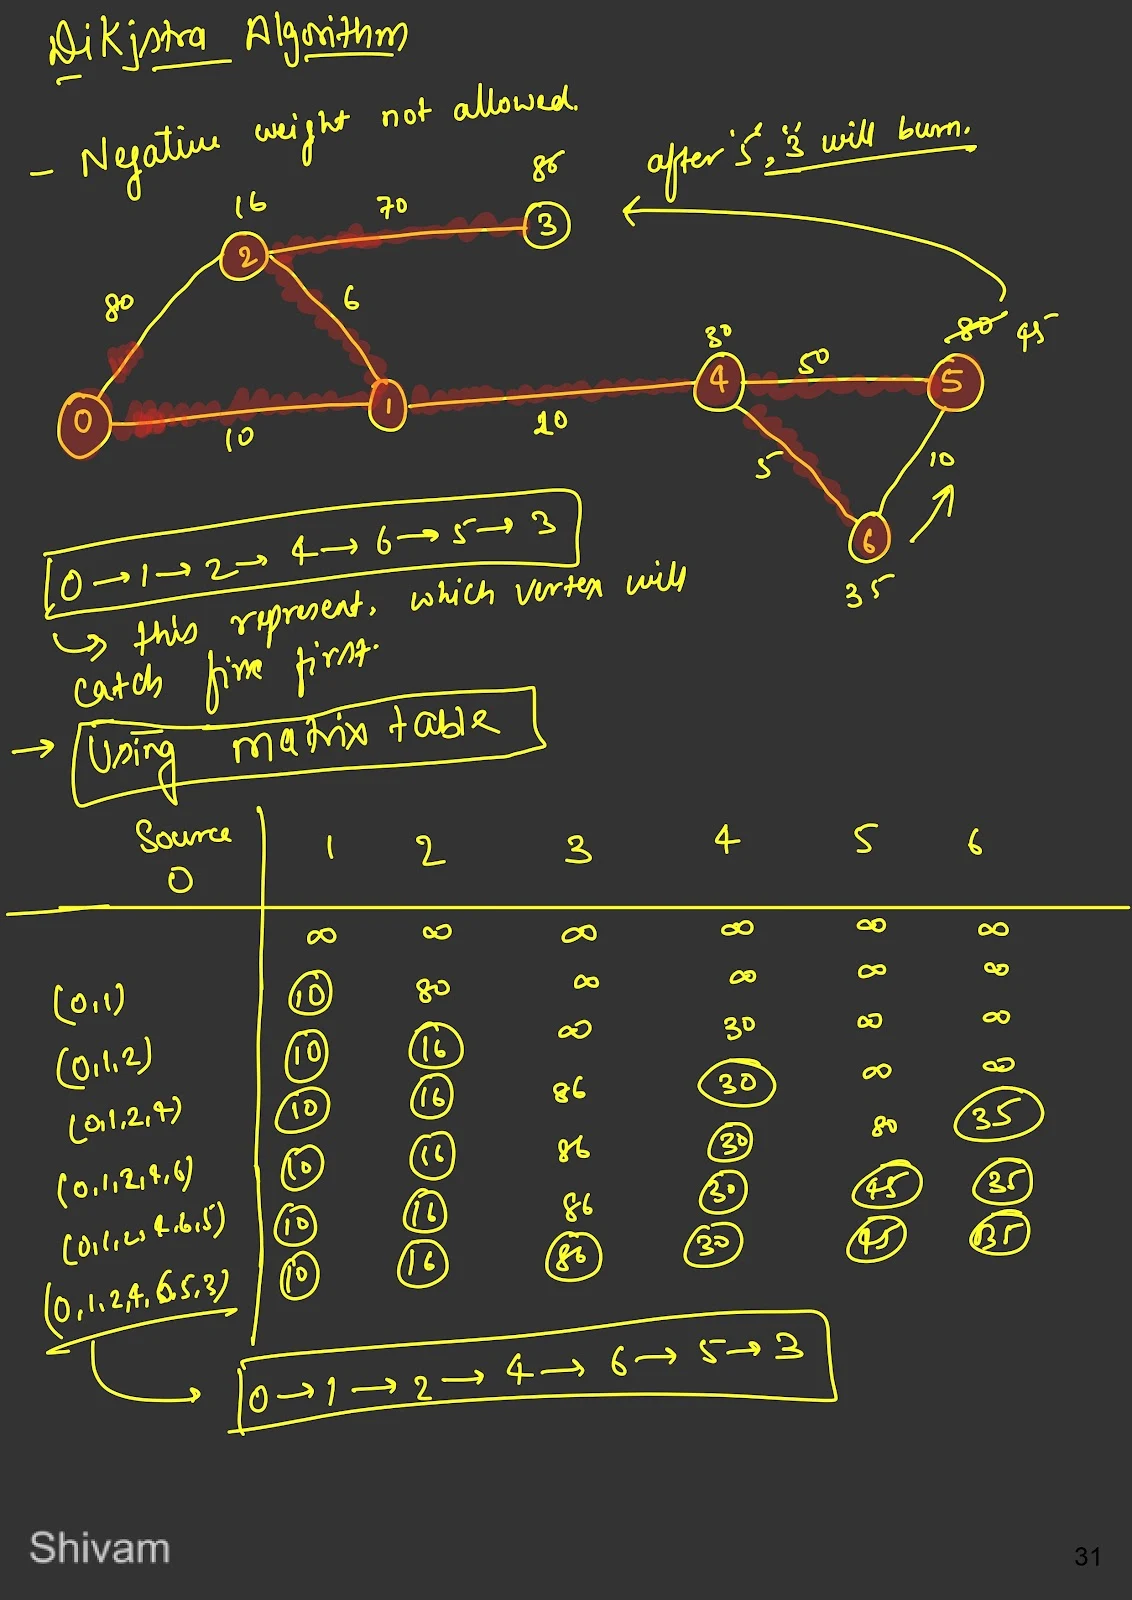 Dikjstra Algorithm
- Negative weight not allowed.
after '5', '3' will burn.
16
70
86
2
3
80
6
30
80 45
4
50
5
0
1
10
20
5
10
6
35
0 → 1 → 2 → 4 → 6 → 5 → 3
↳ this represent, which vertex will
catch fire first.
→ Using matrix table
Source 0 1 2 3 4 5 6
∞ ∞ ∞ ∞ ∞ ∞
(0,1) 10 80 ∞ ∞ ∞ ∞
(0,1,2) 10 16 ∞ 30 ∞ ∞
(0,1,2,4) 10 16 86 30 ∞ ∞
(0,1,2,4,6) 10 16 86 30 80 35
(0,1,2,4,6,5) 10 16 86 30 45 35
(0,1,2,4,6,5,3) 10 16 86 30 45 35
0 → 1 → 2 → 4 → 6 → 5 → 3
Shivam
31